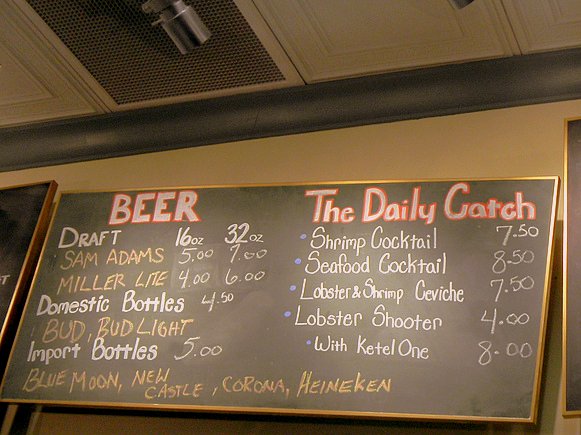 BEER
DRAFT 16oz 32oz
SAM ADAMS 5.00 7.00
MILLER LITE 4.00 6.00
Domestic Bottles 4.50
BUD, BUD LIGHT
Import Bottles 5.00
BLUE MOON, NEW CASTLE, CORONA, HEINEKEN
The Daily Catch
• Shrimp Cocktail 7.50
• Seafood Cocktail 8.50
• Lobster & Shrimp Ceviche 7.50
• Lobster Shooter 4.00
• With Ketel One 8.00